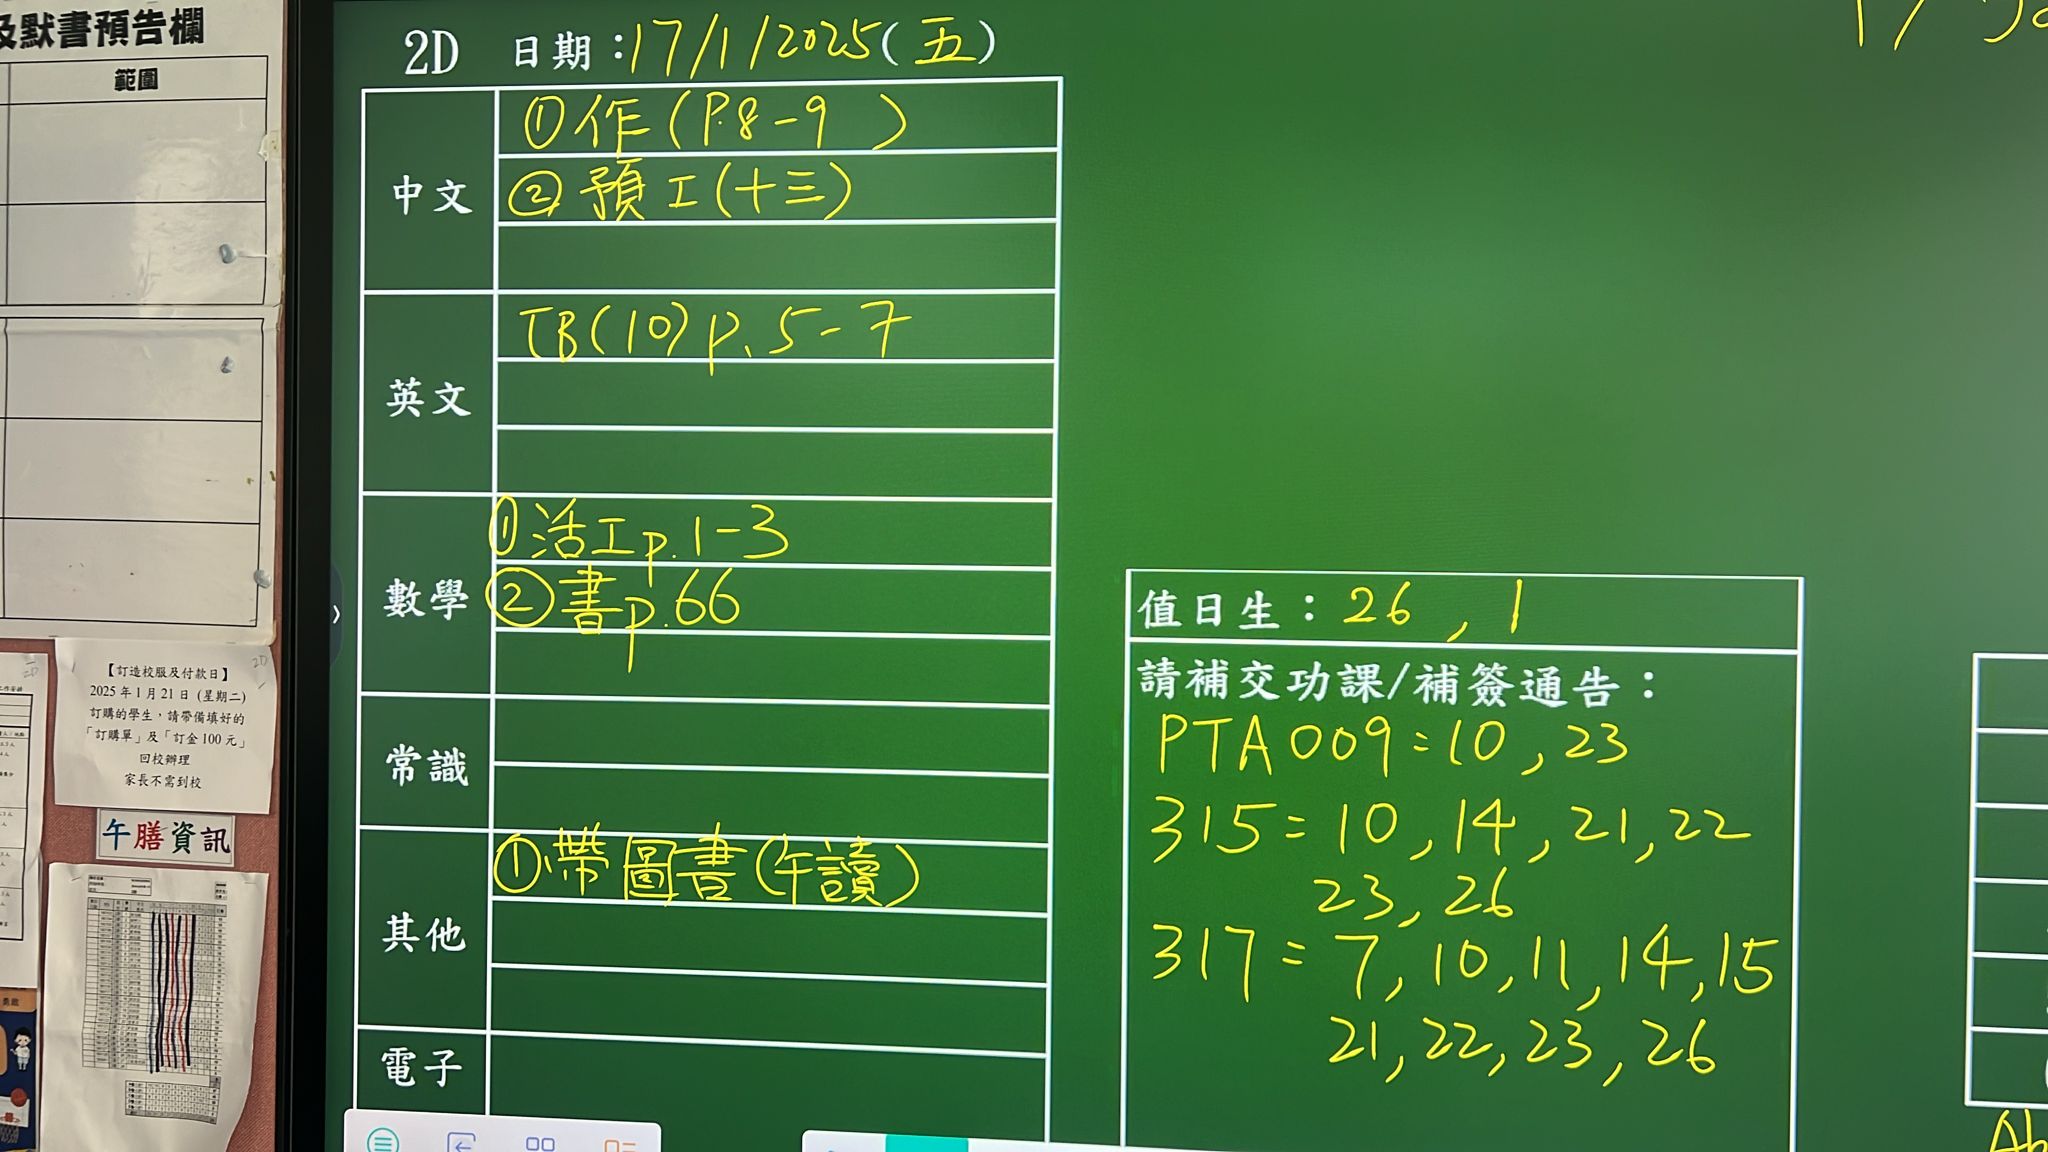 及默書預告欄
範圍
2D 日期:17/1/2025(五)
中文
①作(P.8-9 )
②預工(十三)
英文
TB(10)p.5-7
數學
①活工p.1-3
②書p.66
常識
其他
①帶圖書(午讀)
電子
值日生:26,1
請補交功課/補簽通告:
PTA009=10,23
315=10,14,21,22
23,26
317=7,10,11,14,15
21,22,23,26
【訂造校服及付款日】
2025年1月21日(星期二)
訂購的學生,請帶備填好的
「訂購單」及「訂金100元」
回校辦理
家長不需到校
2D
午膳資訊